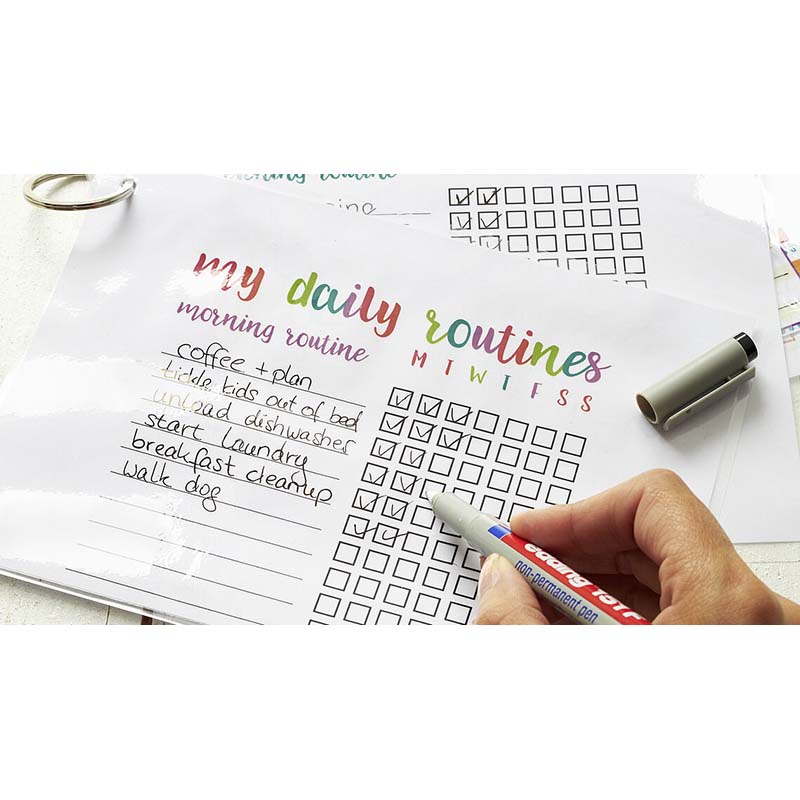 my daily routines
morning routine
M T W T F S S
coffee + plan
tickle kids out of bed
unload dishwasher
start laundry
breakfast cleanup
walk dog
edding 151 F
non-permanent pen